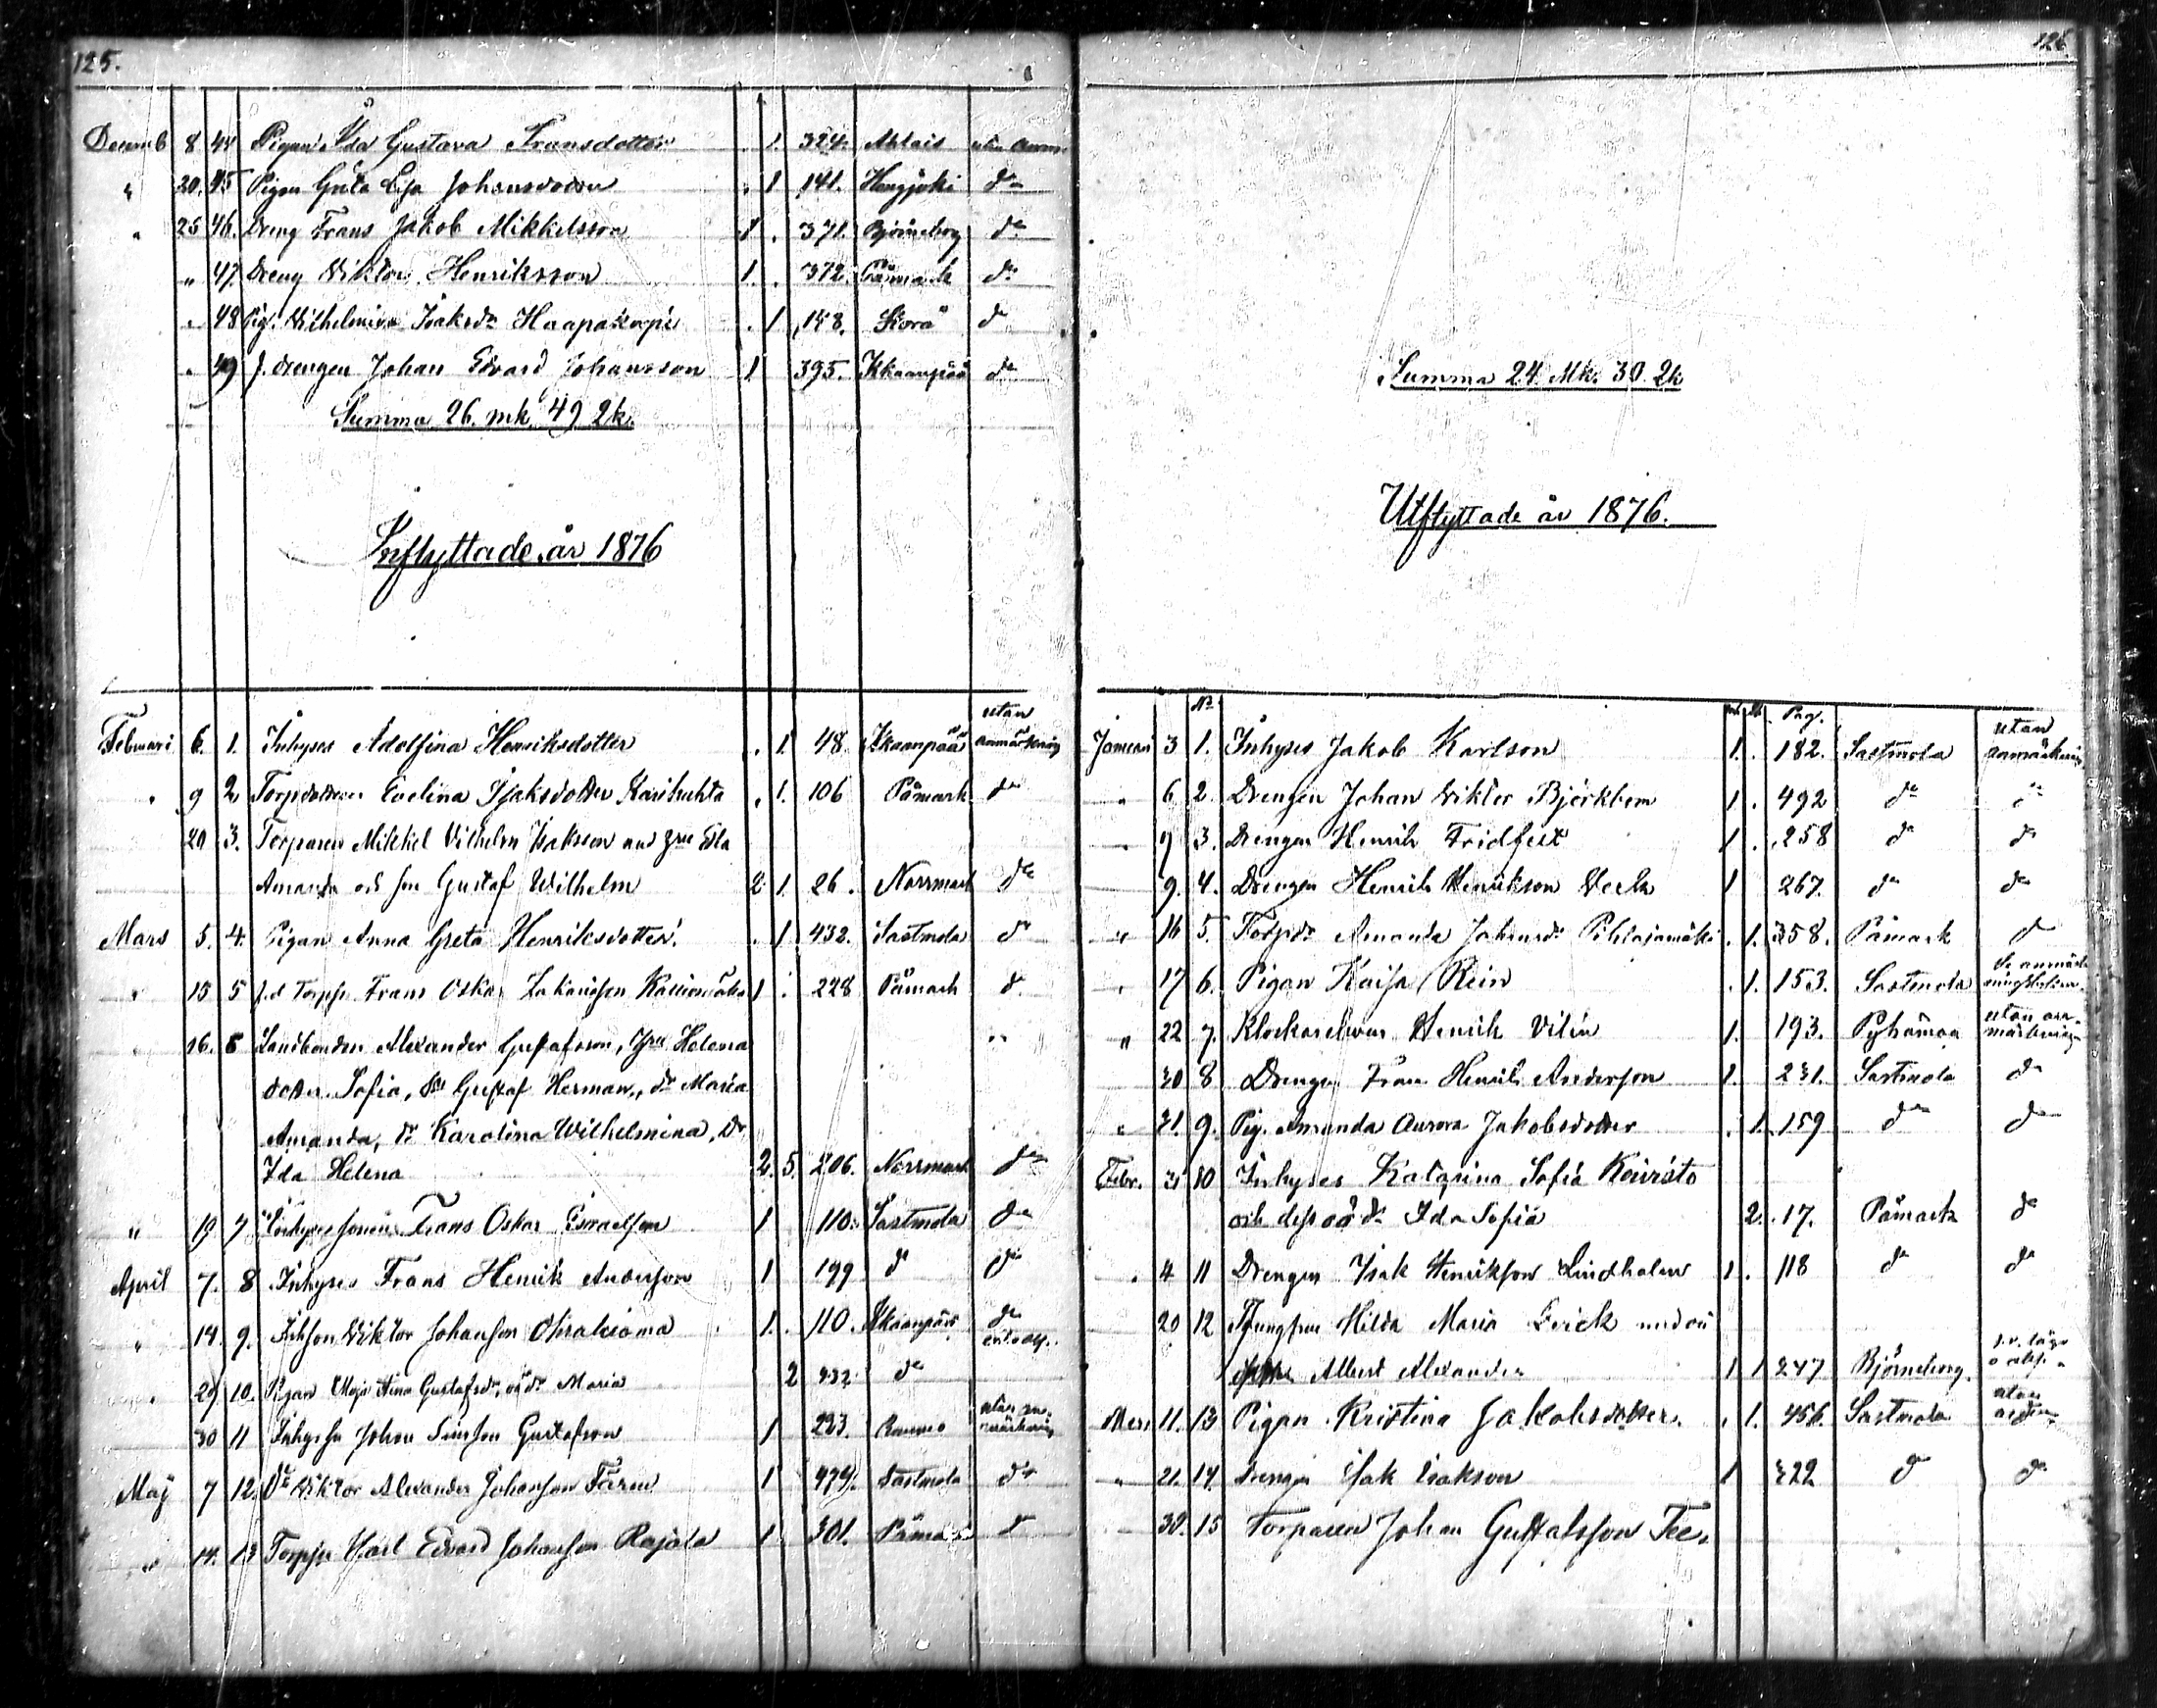 125.
Decemb 8 44 Pigan Ida Gustava Fransdotter . 1. 324. Ahlais utan anm
" 20. 45 Pigan Greta Johansdotter . 1 141. Hongjoki do
" 25 46. Dreng Frans Jakob Mikkelsson 1 . 371. Björneborg do
" 47. Dreng Viktor Henriksson 1. . 372. Påmark do
" 48 Pig. Vilhelmina Isaksdr Haapakorpi . 1 158. do
" 49 f. drengen Johan Edvard Johansson 1 395. Ikkaanpää do
Summa 26. mk. 49 2k.
Inflyttade år 1876
Februari 6. 1. Inhyses Adolfina Henriksdotter . 1. 48. Ikkaanpää utan anmärkning
" 9 2. Torpdottren Evelina Isaksdotter Karhuhta . 1. 106 Påmark do
20 3. Torparen Mikkel Vilhelm Isaksson Edla
Amanda och son Gustaf Wilhelm 2. 1. 26. Norrmark do
Mars 5. 4. Pigan Anna Greta Henriksdotter . 1 432. Sastmola do
" 15 5 f.d. Frans Oskar 1 . 228 Påmark do
" 16. 6 Landbonden Alexander Gustafsson, Helena
dotter Sofia, Gustaf Herman, dr Maria
Amanda, dr Karolina Wilhelmina, Dr
Ida Helena 2. 5. 206. Norrmark do
" 19 7 Frans Oskar Israelsson 1 110. Sastmola do
April 7. 8 Inhyses Frans Henrik Andersson 1 199 do do
" 14. 9. Viktor Johansson 1. . 110. Ikkaanpää do
" 29 10. Pigan Maja Stina Gustafsdr, oä dr Maria 2 do
30 11 Johan Gustafsson 1 223. Raumo utan anmärkning
Maj 7 12. Do Viktor Alexander Johansson 1 474. Sastmola do
" 14. 13 Karl Edvard Johansson Rajala 1 301. Påmark do
126
Summa 24. Mk. 30. 2k
Utflyttade år 1876.
No Pag.
Januari 3 1. Inhyses Jakob Karlson 1. . 182. Sastmola utan anmärkning
" 6 2. Drengen Johan Viktor Björkbom 1 . 492 do do
" 9 3. Drengen Henrik Fridfelt 1 . 258 do do
9. 4. Drengen Henrik Henrikson 1 267. do do
" 16 5. Torpdr Amanda Johansdr Pihlajamäki . 1. 358. Påmark do
" 17 6. Pigan Kaisa Rein . 1. 153. Sastmola
" 22 7. Henrik Vilén 1. 193. Pyhämaa utan anmärkning
30 8 Drengen Frans Henrik Andersson 1. 231. Sastmola do
" 31. 9. Pig. Amanda Aurora Jakobsdotter . 1. 159 do do
Febr. 3 10 Inhyses Katarina Sofia Koivisto
och dess oä dr Ida Sofia 2. 17. Påmark do
" 4 11 Drengen Isak Henriksson Lindholm 1 . 118 do do
20 12 Hilda Maria
Albert Alexander 1 1 247 Björneborg
Mars 11. 13 Pigan Kristina Jakobsdotter . 1. 456. Sastmola utan
" 21. 14. Drengen Isak Isakson 1 322 do do
30. 15 Torparen Johan Gustafsson